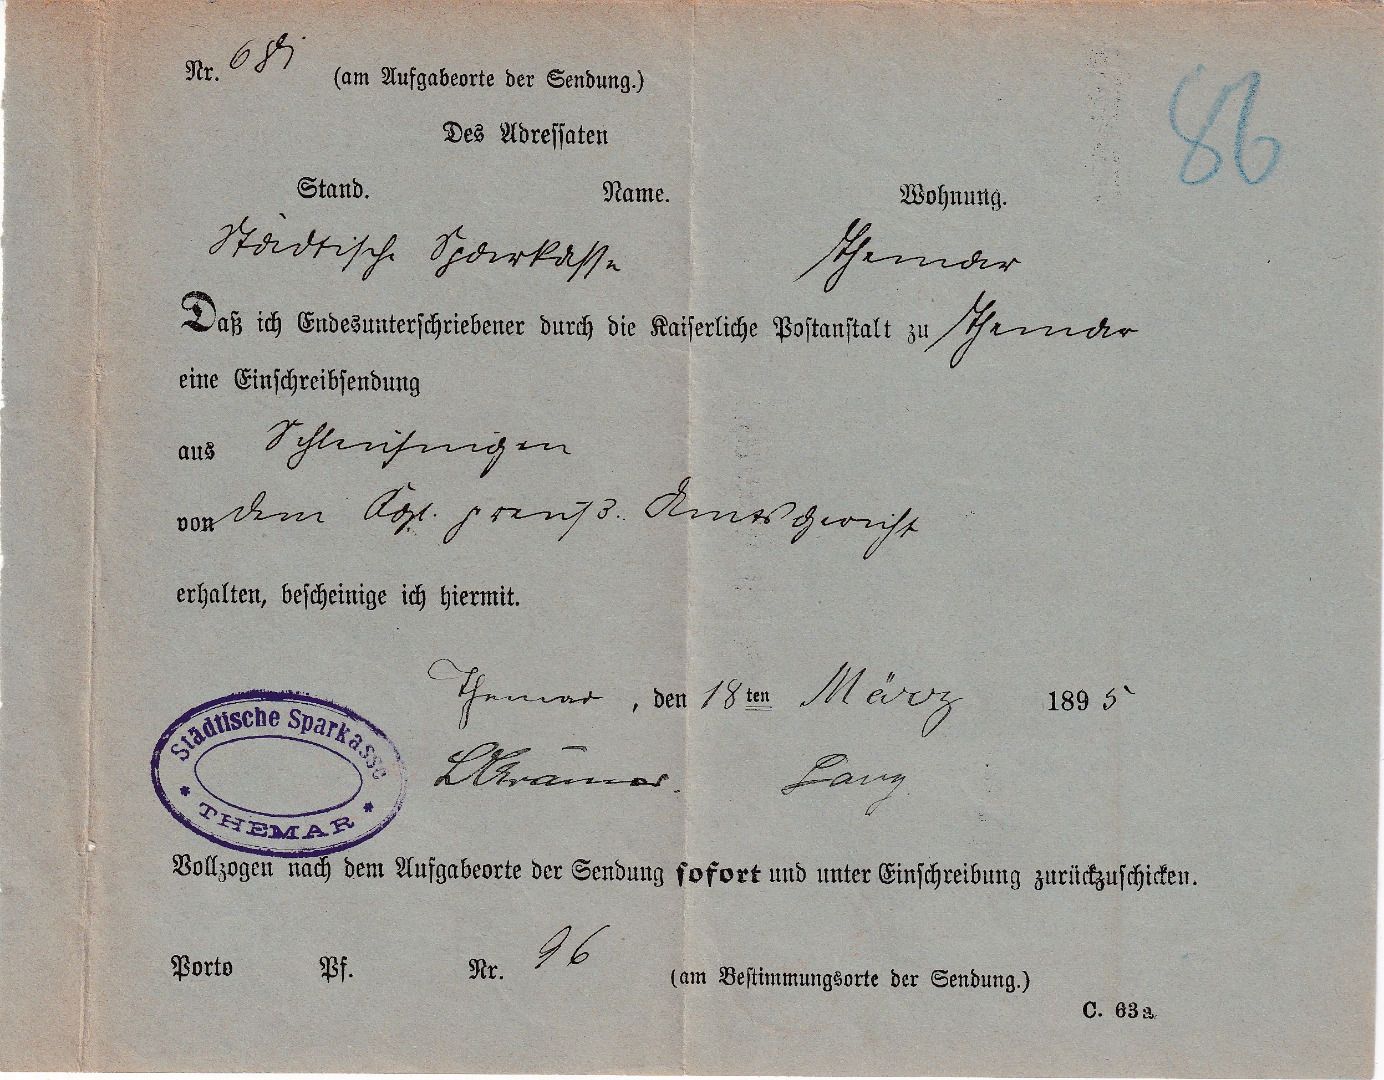 Nr. 68 (am Aufgabeorte der Sendung.)
86
Des Adressaten
Stand. Name. Wohnung.
Städtische Sparkasse Themar
Daß ich Endesunterschriebener durch die Kaiserliche Postanstalt zu Themar
eine Einschreibsendung
aus Schleusingen
von dem Kgl. preuß. Amtsgericht
erhalten, bescheinige ich hiermit.
Themar, den 18ten März 1895
Städtische Sparkasse
* THEMAR *
Krämer. Lang
Vollzogen nach dem Aufgabeorte der Sendung sofort und unter Einschreibung zurückzuschicken.
Porto Pf. Nr. 96 (am Bestimmungsorte der Sendung.)
C. 63a